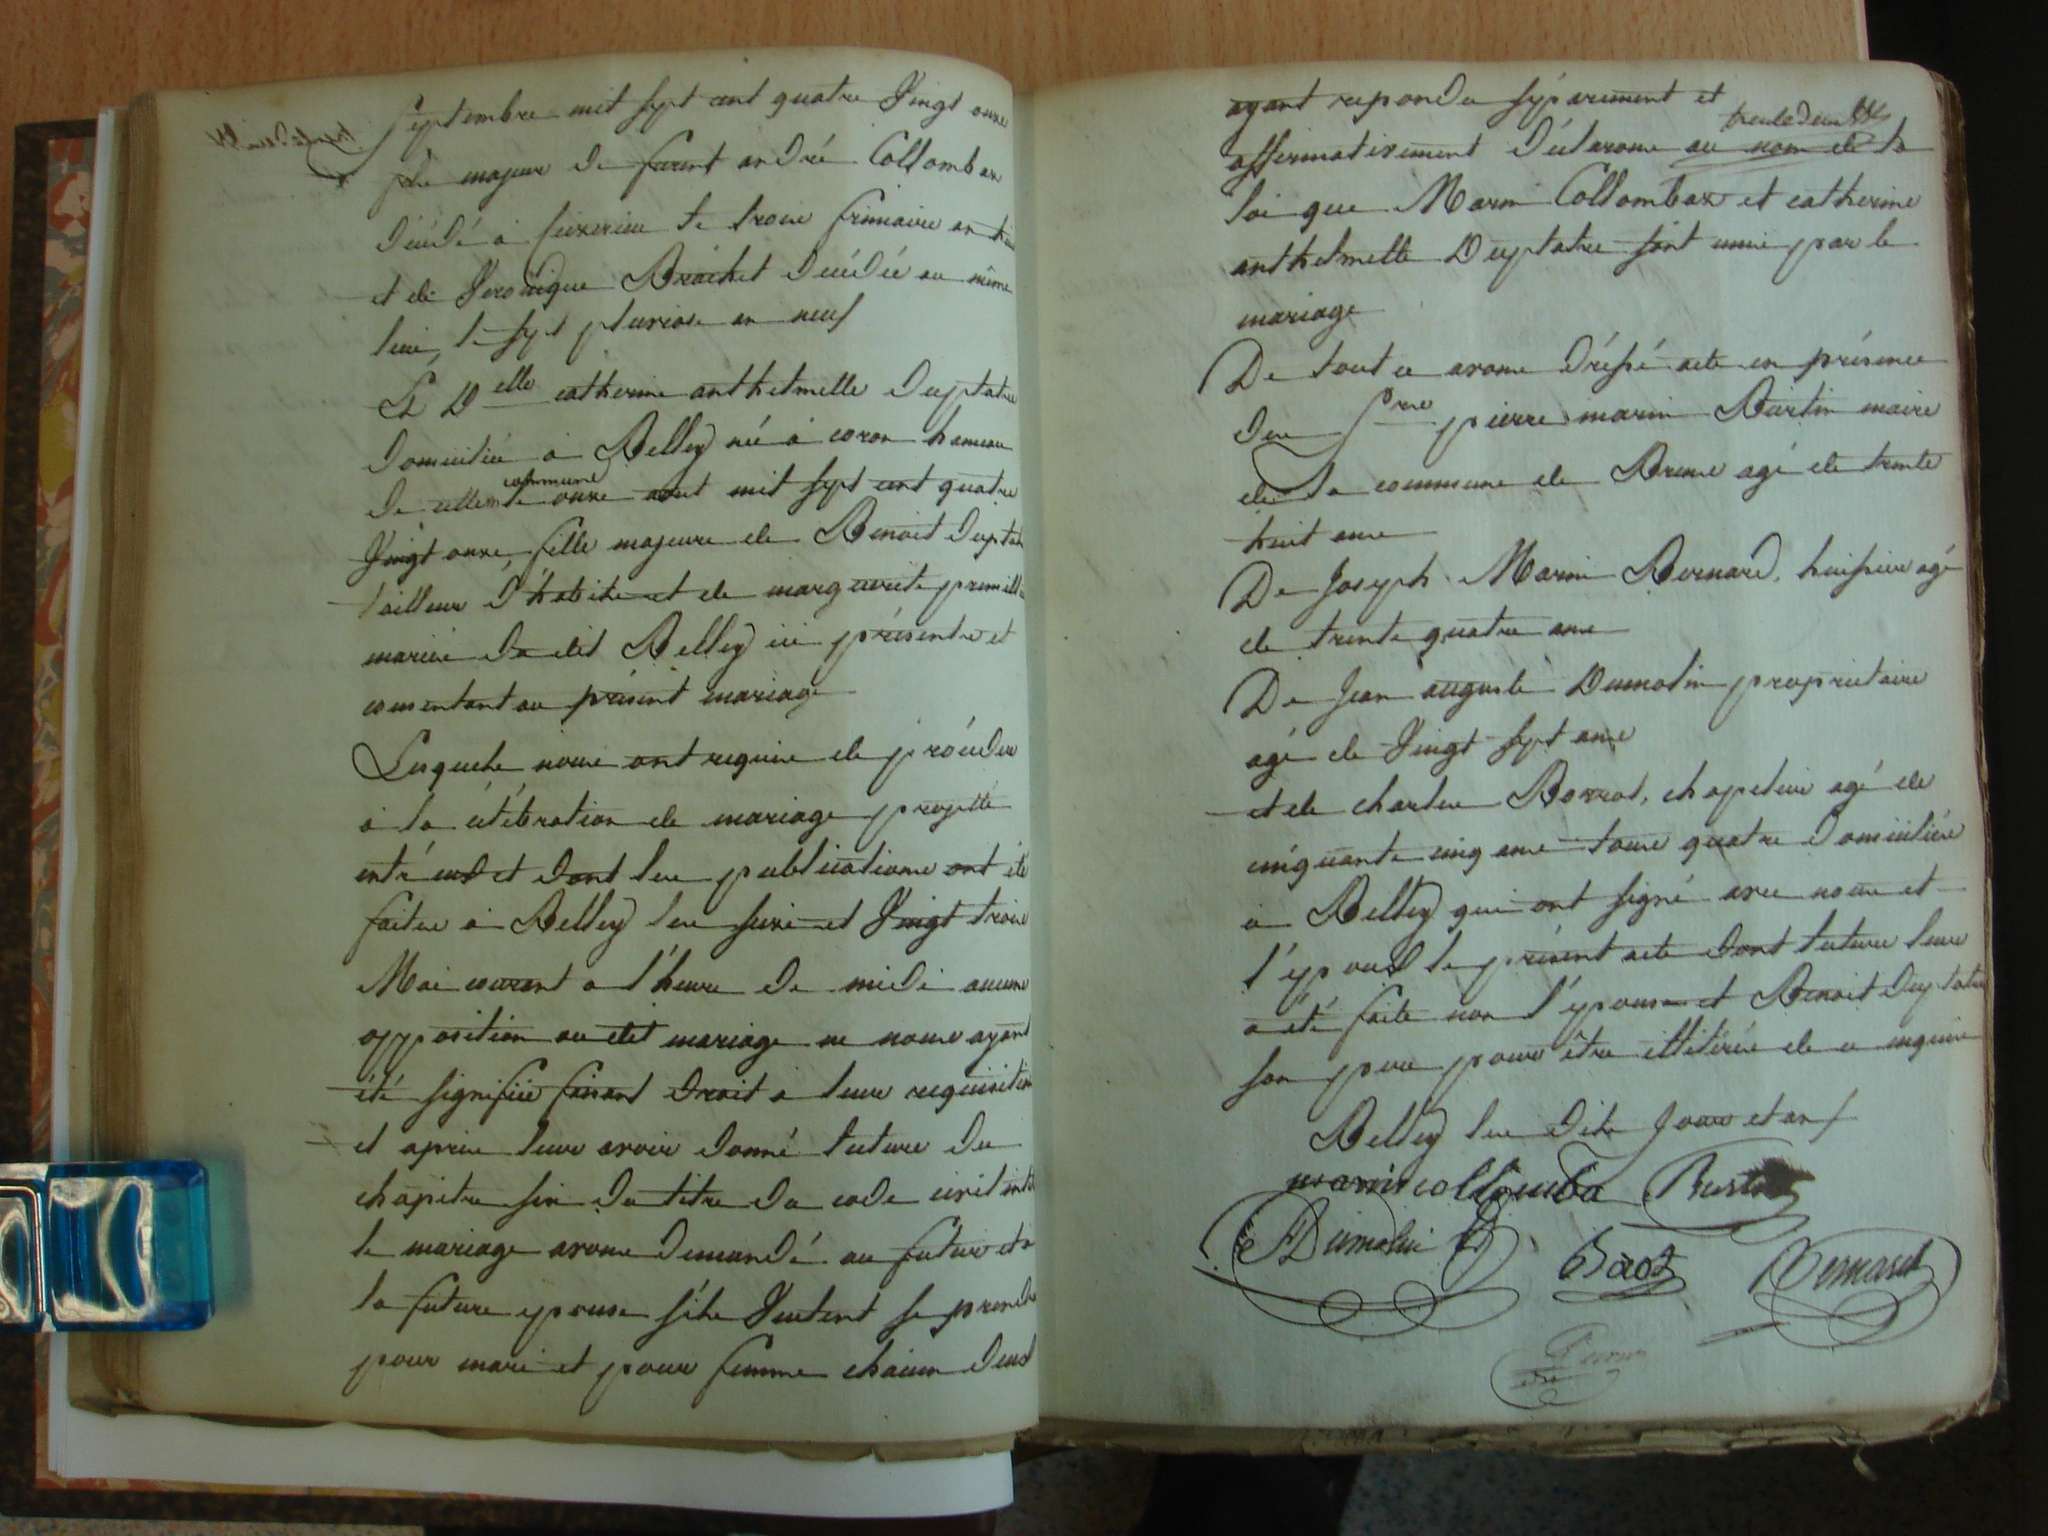 Septembre mil sept cent quatre Vingt onze
fils majeur de furent andré Collombar
décédé à le treize frimaire an
et de Veronique Brachet décédée au même
lieu, le sept pluviose an neuf
Et Delle catherine anthelmette Duplatre
domiciliée à Belley née à coron hameau
de cette commune le onze aout mil sept cent quatre
Vingt onze, fille majeure de Benoit Duplatre
tailleur d'habits et de marguerite
mariés du dit Belley ici présents et
consentant au présent mariage
Lesquels nous ont requis de procéder
à la célébration de mariage projetté
entr'eux et dont les publications ont été
faites à Belley les seize et Vingt trois
Mai courant a l'heure de midi aucune
opposition au dit mariage ne nous ayant
été signifiée faisant droit à leur requisition
et après leur avoir donné lecture du
chapitre six du titre du code civil intitulé
le mariage avons demandé au futur et a
la future epouse s'ils Veulent se prendre
pour mari et pour femme chacun d'eux
trente deux
ayant repondu séparement et
affirmativement déclarons au nom de la
loi que Marin Collombar et catherine
anthelmette Duplatre sont unis par le
mariage
De tout ce avons dréssé acte en présence
des Srs pierre marin Burtin maire
de la commune de Brens agé de trente
huit ans
De Joseph Marin Bernard, huissier agé
de trente quatre ans
De Jean auguste Dumolin proprietaire
agé de Vingt sept ans
et de charles Borrot, chapelier agé de
cinquante cinq ans tous quatre domiciliés
à Belley qui ont signé avec nous et
l'epoux le présent acte dont lecture leur
a été faite non l'épouse et Benoit Duplatre
son pere pour être illitérés de ce enquis
Belley les dits jour et an
marin collomba Burtin
Dumolin Borot Bernard